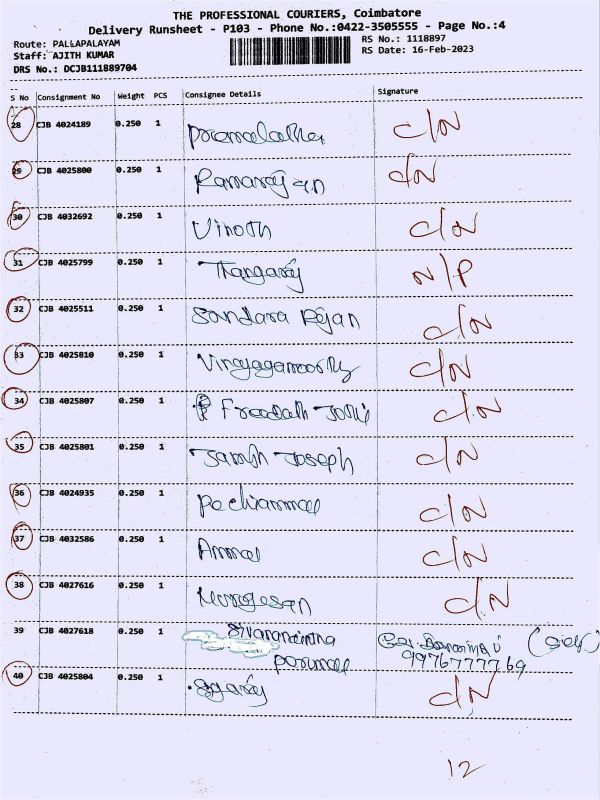 THE PROFESSIONAL COURIERS, Coimbatore
Delivery Runsheet - P103 - Phone No.:0422-3505555 - Page No.:4
Route: PALLAPALAYAM RS No.: 1118897
Staff: AJITH KUMAR RS Date: 16-Feb-2023
DRS No.: DCJB111889704
S No Consignment No Weight PCS Consignee Details Signature
28 CJB 4024189 0.250 1 Premalatha C/N
29 CJB 4025800 0.250 1 C/N
30 CJB 4032692 0.250 1 Vinoth C/N
31 CJB 4025799 0.250 1 Thangaraj N/P
32 CJB 4025511 0.250 1 Sundara Rajan C/N
33 CJB 4025810 0.250 1 Vinayagamoorthy C/N
34 CJB 4025807 0.250 1 C/N
35 CJB 4025801 0.250 1 Joseph C/N
36 CJB 4024935 0.250 1 Pechiammal C/N
37 CJB 4032586 0.250 1 C/N
38 CJB 4027616 0.250 1 Murugesan C/N
39 CJB 4027618 0.250 1
Perumal 9976777769
40 CJB 4025804 0.250 1 C/N
12